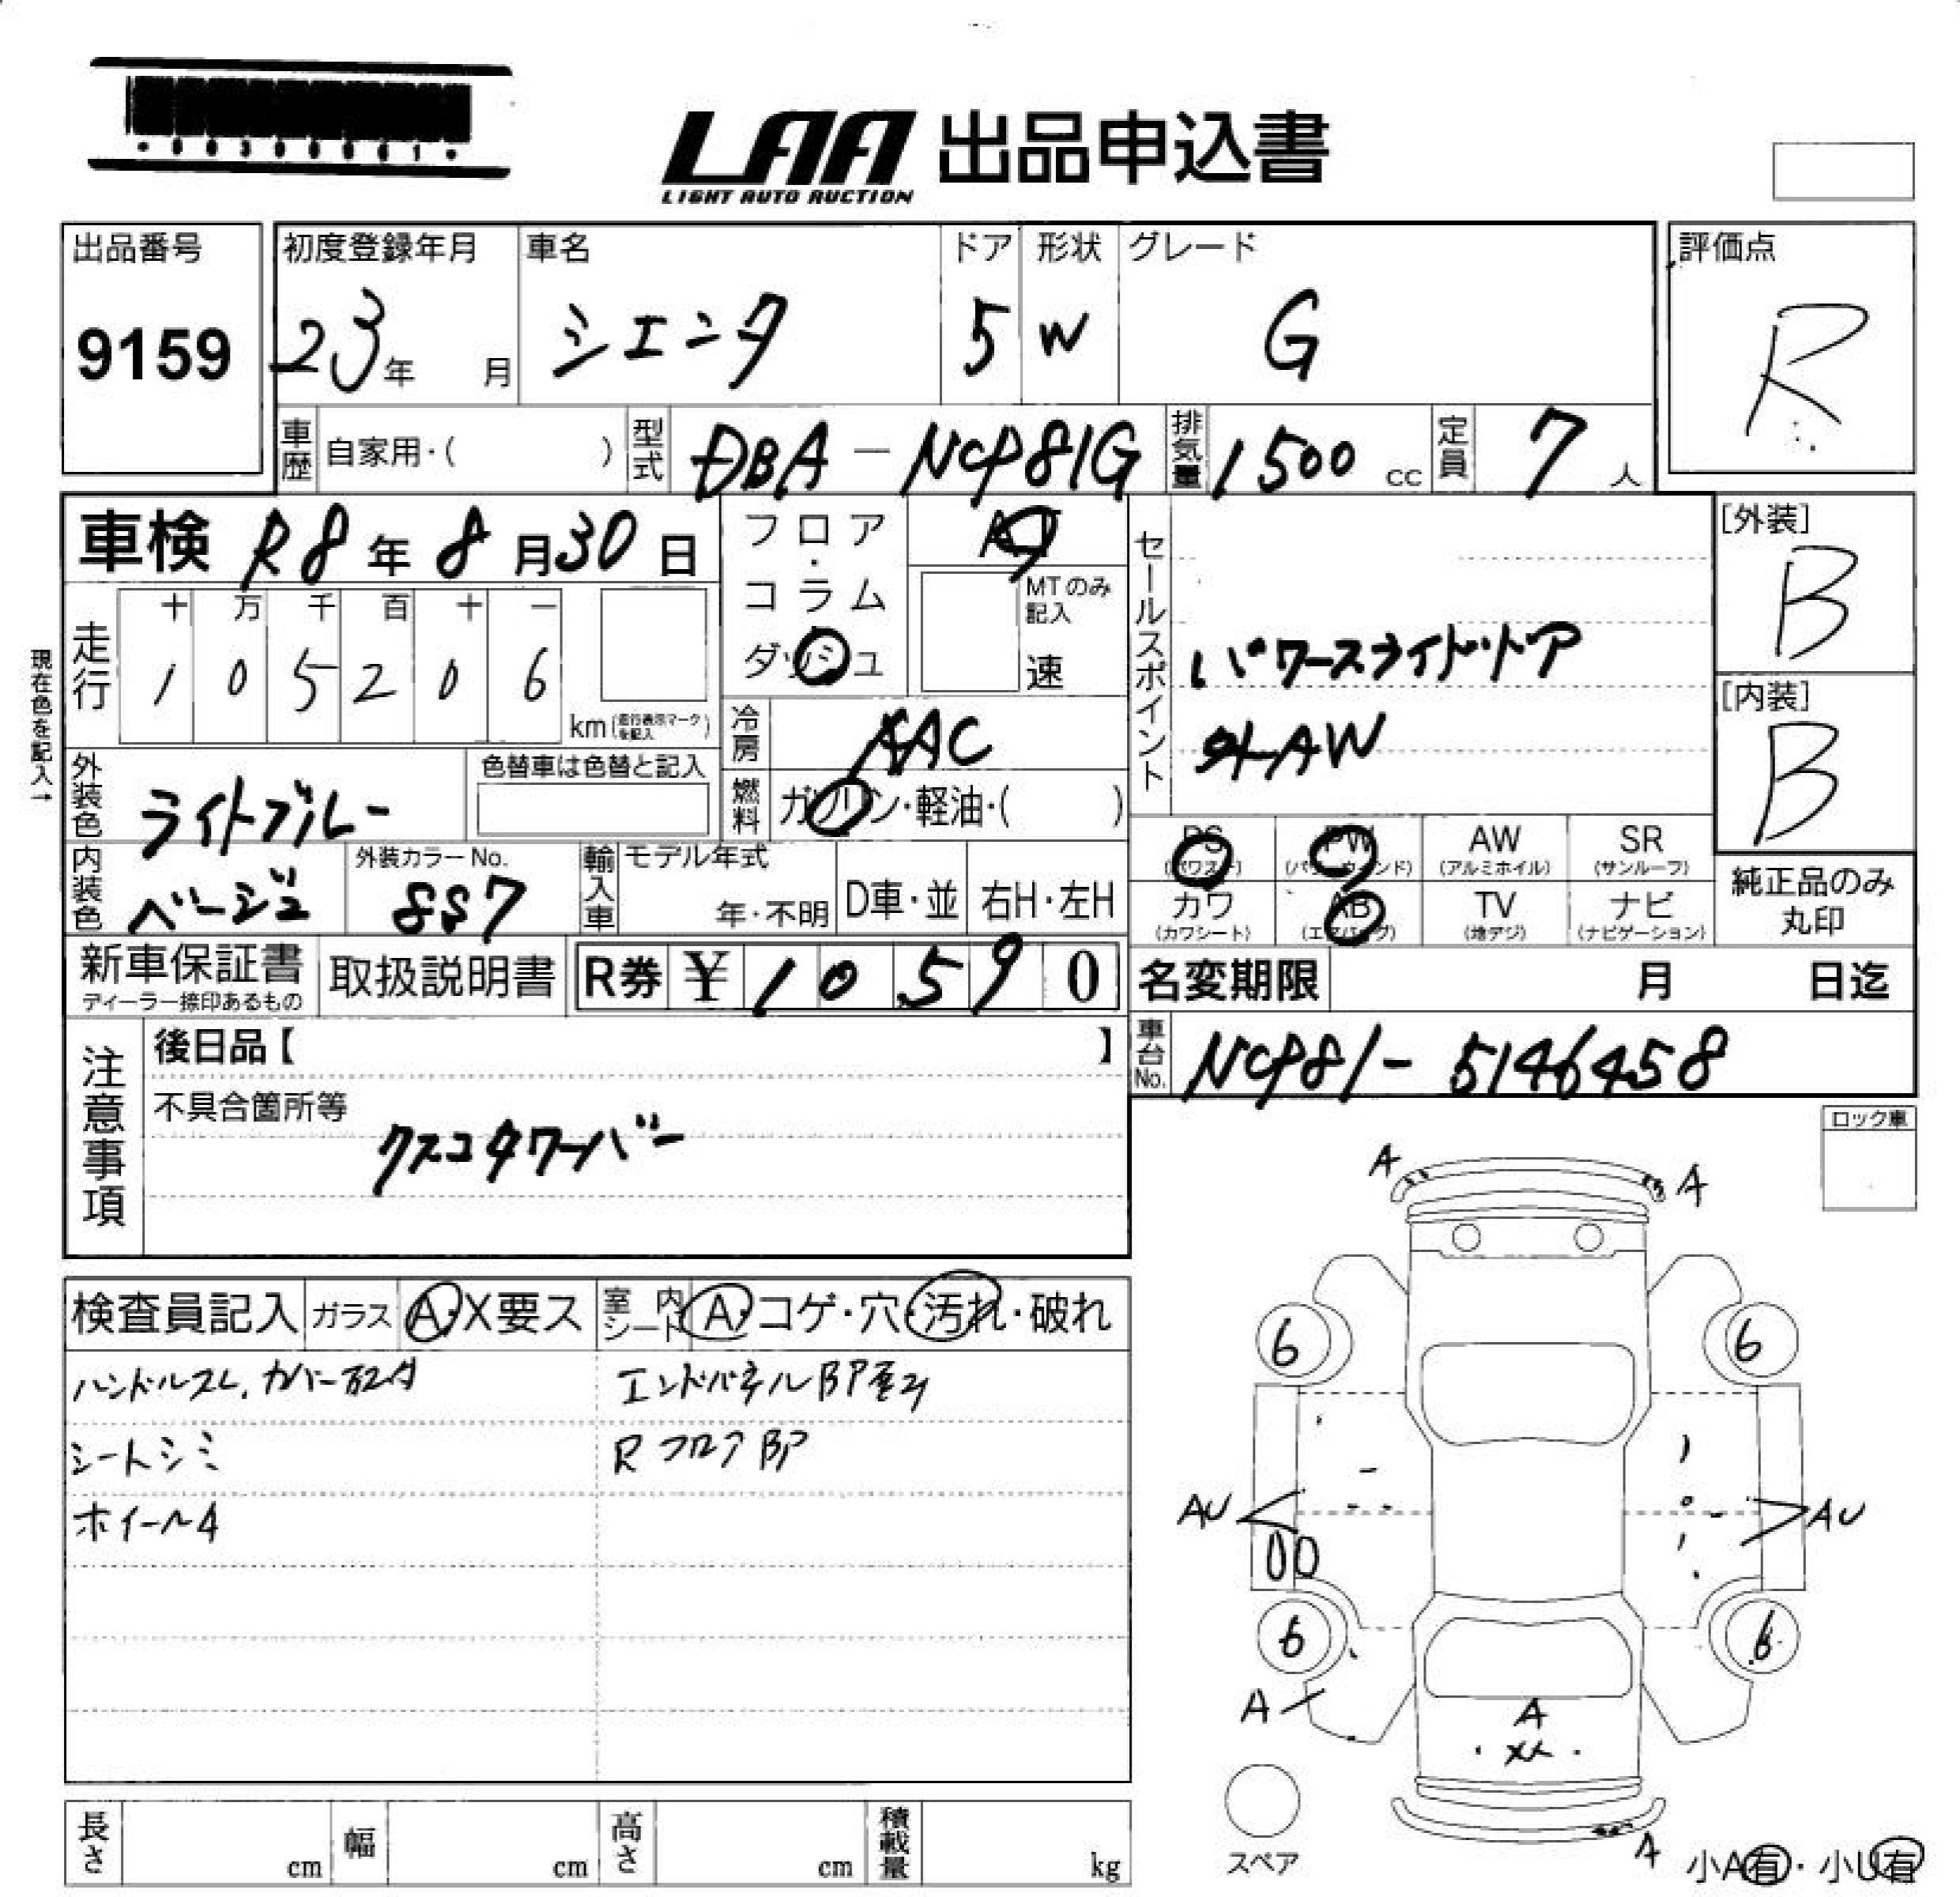 LAA 出品申込書
LIGHT AUTO AUCTION
出品番号
9159
初度登録年月
23年 月
車名
シエンタ
ドア
5
形状
W
グレード
G
評価点
R
車歴 自家用・( )
型式 DBA-NCP81G
排気量 1500 cc
定員 7 人
車検 R8年 8月30日
フロア・コラム ダッシュ
AT
MTのみ記入
速
セールスポイント
パワースライドドア
外AW
[外装]
B
[内装]
B
走行
十 万 千 百 十 一
1 0 5 2 0 6
km (走行表示マークを記入)
現在色を記入→
冷房 AAC
燃料 ガソリン・軽油・( )
外装色 ライトブルー
色替車は色替と記入
内装色 ベージュ
外装カラーNo.
8S7
輸入車 モデル年式
年・不明
D車・並
右H・左H
PS (パワステ)
PW (パワーウィンド)
AW (アルミホイル)
SR (サンルーフ)
カワ (カワシート)
AB (エアバッグ)
TV (地デジ)
ナビ (ナビゲーション)
純正品のみ丸印
新車保証書
ディーラー捺印あるもの
取扱説明書
R券 ¥ 1 0 5 9 0
名変期限 月 日迄
車台No. NCP81-5146458
注意事項
後日品【 】
不具合箇所等
クスコタワーバー
ロック車
検査員記入
ガラス A・X要ス
室内シート A・コゲ・穴・汚れ・破れ
ハンドルスレ、カバー
シートシミ
ホイールA
エンドパネルBP歪み
RフロアBP
A
A
6
6
AU
AU
6
6
A
A
A
スペア
小A有・小U有
長さ cm
幅 cm
高さ cm
積載量 kg